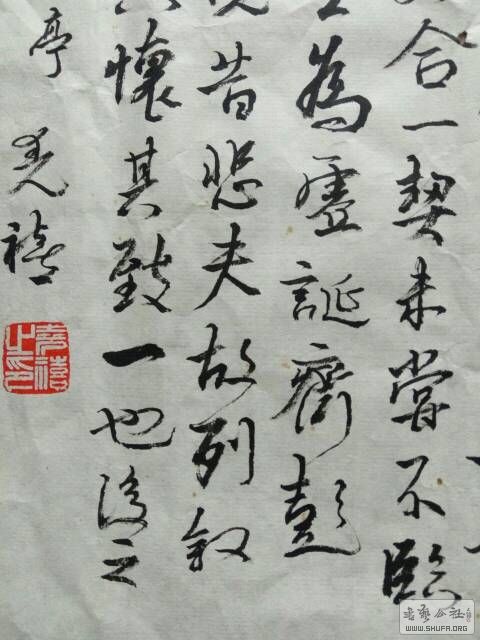 合一契未嘗不臨
為虛誕齊彭
昔悲夫故列叙
懷其致一也後之
亭 禧
书艺公社
WWW.SHUFA.ORG